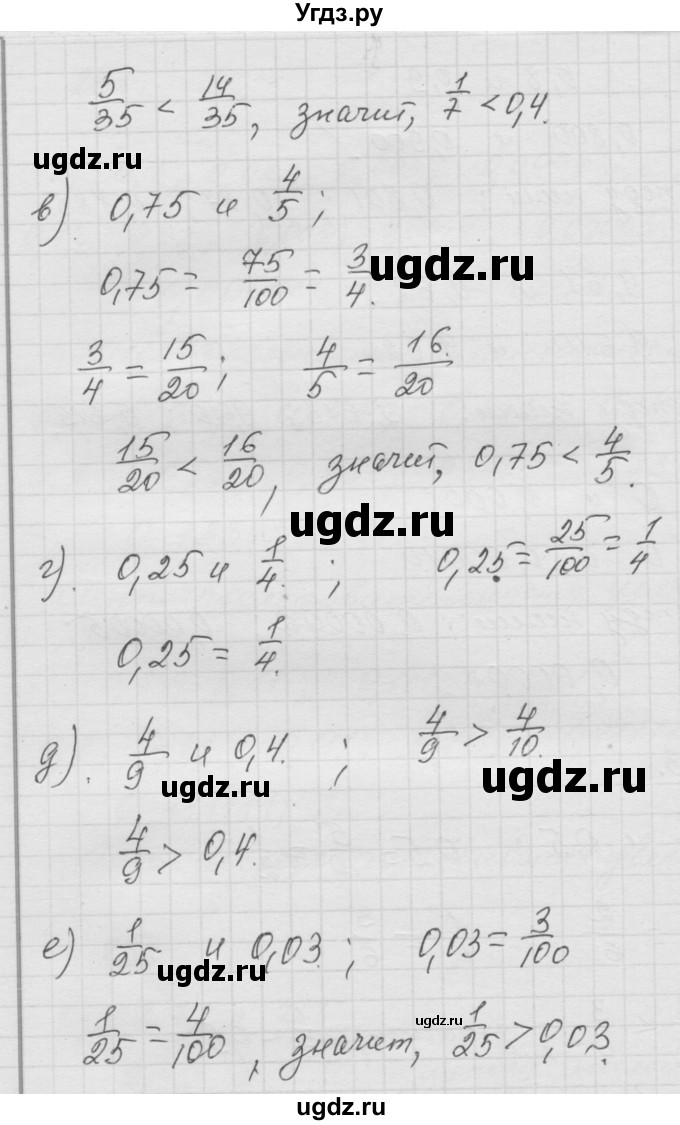 Угдз.ру
5/35 < 14/35, значит, 1/7 < 0,4.
ugdz.ru
в) 0,75 и 4/5;
0,75 = 75/100 = 3/4.
ugdz.ru
3/4 = 15/20; 4/5 = 16/20
15/20 < 16/20, значит, 0,75 < 4/5.
ugdz.ru
г). 0,25 и 1/4. ; 0,25 = 25/100 = 1/4
0,25 = 1/4.
д). 4/9 и 0,4. ; 4/9 > 4/10.
ugdz.ru
ugdz.ru
4/9 > 0,4.
е) 1/25 и 0,03 ; 0,03 = 3/100
ugdz.ru
1/25 = 4/100, значит, 1/25 > 0,03.
ugdz.ru
ugdz.ru